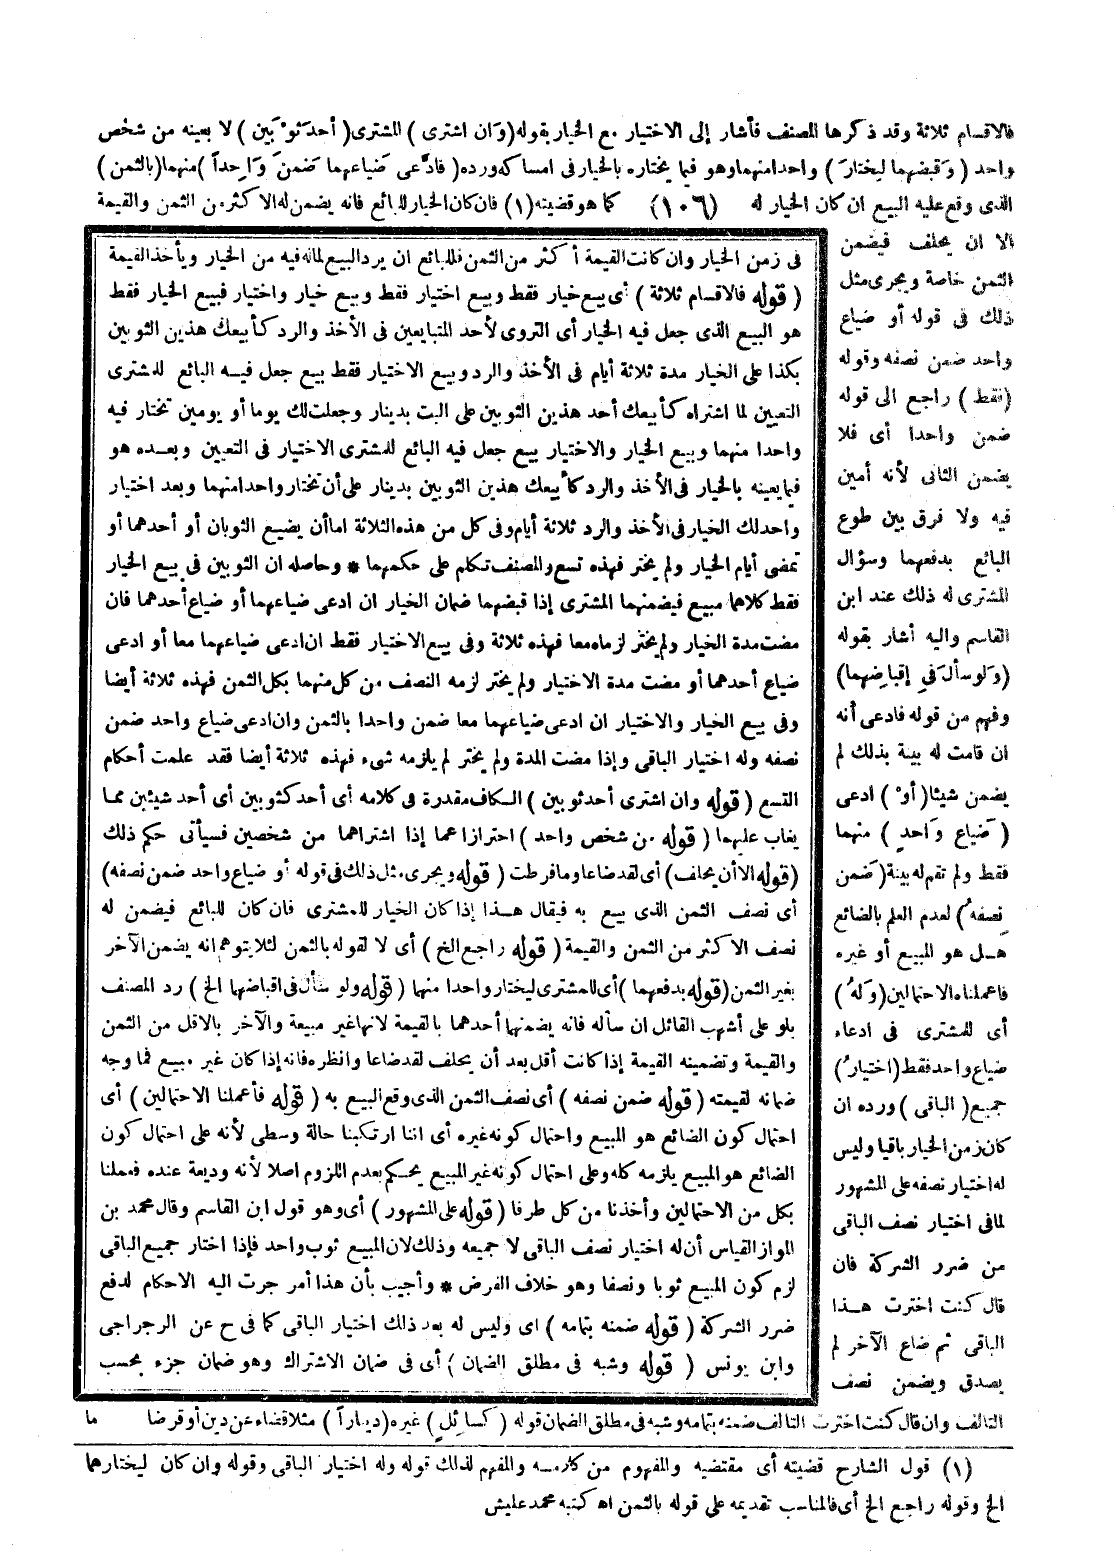 فالاقسام ثلاثة وقد ذكرها المصنف فأشار إلى الاختيار مع الخيار بقوله (وَان اشترى) المشترى (أحدَ ثوْبَين) لا بعينه من شخص
واحد (وَقبضهما ليختارَ) واحدا منهما وهو فيما يختاره بالخيار فى امساكه ورده (فادَّعى ضَياعهما ضَمنَ وَاحِداً) منهما (بالثمن)
الذى وقع عليه البيع ان كان الخيار له (١٠٦) كما هو قضيته (١) فان كان الخيار للبائع فانه يضمن له الاكثر من الثمن والقيمة
الا ان يحلف فيضمن
الثمن خاصة ويجرى مثل
ذلك فى قوله أو ضياع
واحد ضمن نصفه وقوله
(فقط) راجع الى قوله
ضمن واحدا أى فلا
يضمن الثانى لأنه أمين
فيه ولا فرق بين طوع
البائع بدفعهما وسؤال
المشترى له ذلك عند ابن
القاسم واليه أشار بقوله
(وَلو سألَ فى إقباضِهما)
وفهم من قوله فادعى أنه
ان قامت له بينة بذلك لم
يضمن شيئا (أوْ) ادعى
(ضَياع وَاحدٍ) منهما
فقط ولم تقم له بينة (ضَمن
نِصفه) لعدم العلم بالضائع
هـل هو المبيع أو غيره
فاعملنا الاحتمالين (وَلهُ)
أى للمشترى فى ادعاء
ضياع واحد فقط (اختيارُ)
جميع (الباقى) ورده ان
كان زمن الخيار باقيا وليس
له اختيار نصفه على المشهور
لما فى اختيار نصف الباقى
من ضرر الشركة فان
قال كنت اخترت هـذا
الباقى ثم ضاع الآخر لم
يصدق ويضمن نصف
التالف وان قال كنت اخترت التالف ضمنه بتمامه وشبه فى مطلق الضمان قوله (كسائلٍ) غيره (ديناراً) مثلا قضاء عن دين أو قرضا ما
فى زمن الخيار وان كانت القيمة أكثر من الثمن فللبائع ان يرد البيع لماله فيه من الخيار ويأخذ القيمة
(قوله فالاقسام ثلاثة) أى بيع خيار فقط وبيع اختيار فقط وبيع خيار واختيار فبيع الخيار فقط
هو البيع الذى جعل فيه الخيار أى التروى لأحد المتبايعين فى الأخذ والرد كأبيعك هذين الثوبين
بكذا على الخيار مدة ثلاثة أيام فى الأخذ والرد وبيع الاختيار فقط بيع جعل فيه البائع للمشترى
التعيين لما اشتراه كأبيعك أحد هذين الثوبين على البت بدينار وجعلت لك يوما أو يومين تختار فيه
واحدا منهما وبيع الخيار والاختيار بيع جعل فيه البائع للمشترى الاختيار فى التعيين وبعـده هو
فيما يعينه بالخيار فى الأخذ والرد كأبيعك هذين الثوبين بدينار على أن تختار واحدا منهما وبعد اختيار
واحد لك الخيار فى الأخذ والرد ثلاثة أيام وفى كل من هذه الثلاثة اما أن يضيع الثوبان أو أحدهما أو
تمضى أيام الخيار ولم يختر فهذه تسع والمصنف تكلم على حكمهما * وحاصله ان الثوبين فى بيع الخيار
فقط كلاهما مبيع فيضمنهما المشترى إذا قبضهما ضمان الخيار ان ادعى ضياعهما أو ضياع أحدهما فان
مضت مدة الخيار ولم يختر لزماه معا فهذه ثلاثة وفى بيع الاختيار فقط ان ادعى ضياعهما معا أو ادعى
ضياع أحدهما أو مضت مدة الاختيار ولم يختر لزمه النصف من كل منهما بكل الثمن فهذه ثلاثة أيضا
وفى بيع الخيار والاختيار ان ادعى ضياعهما معا ضمن واحدا بالثمن وان ادعى ضياع واحد ضمن
نصفه وله اختيار الباقى وإذا مضت المدة ولم يختر لم يلزمه شىء فهذه ثلاثة أيضا فقد علمت أحكام
التسع (قوله وان اشترى أحد ثوبين) الكاف مقدرة فى كلامه أى أحد كثوبين أى أحد شيئين مما
يغاب عليهما (قوله من شخص واحد) احترازا عما إذا اشتراهما من شخصين فسيأتى حكم ذلك
(قوله الا أن يحلف) أى لقد ضاعا وما فرطت (قوله ويجرى مثل ذلك فى قوله أو ضياع واحد ضمن نصفه)
أى نصف الثمن الذى بيع به فيقال هـذا إذا كان الخيار للمشترى فان كان للبائع فيضمن له
نصف الاكثر من الثمن والقيمة (قوله راجع الخ) أى لا لقوله بالثمن لئلا يتوهم انه يضمن الآخر
بغير الثمن (قوله بدفعهما) أى للمشترى ليختار واحدا منهما (قوله ولو سأل فى اقباضها الخ) رد المصنف
بلو على أشهب القائل ان سأله فانه يضمنها أحدهما بالقيمة لانها غير مبيعة والآخر بالاقل من الثمن
والقيمة وتضمينه القيمة إذا كانت أقل بعد أن يحلف لقد ضاعا وانظره فانه إذا كان غير مبيع فما وجه
ضمانه لقيمته (قوله ضمن نصفه) أى نصف الثمن الذى وقع البيع به (قوله فأعملنا الاحتمالين) أى
احتمال كون الضائع هو المبيع واحتمال كونه غيره أى اننا ارتكبنا حالة وسطى لأنه على احتمال كون
الضائع هو المبيع يلزمه كله وعلى احتمال كونه غير المبيع يحكم بعدم اللزوم اصلا لأنه وديعة عنده فعملنا
بكل من الاحتمالين وأخذنا من كل طرفا (قوله على المشهور) أى وهو قول ابن القاسم وقال محمد بن
المواز القياس أن له اختيار نصف الباقى لا جميعه وذلك لان المبيع ثوب واحد فإذا اختار جميع الباقى
لزم كون المبيع ثوبا ونصفا وهو خلاف الفرض * وأجيب بأن هذا أمر جرت اليه الاحكام لدفع
ضرر الشركة (قوله ضمنه بتمامه) اى وليس له بعد ذلك اختيار الباقى كما فى ح عن الرجراجى
وابن يونس (قوله وشبه فى مطلق الضمان) أى فى ضمان الاشتراك وهو ضمان جزء بحسب
(١) قول الشارح قضيته أى مقتضيه والمفهوم من كلامه والمفهم لذلك قوله وله اختيار الباقى وقوله وان كان ليختارهما
الخ وقوله راجع الخ أى فالمناسب تقديمه على قوله بالثمن اه كتبه محمد عليش